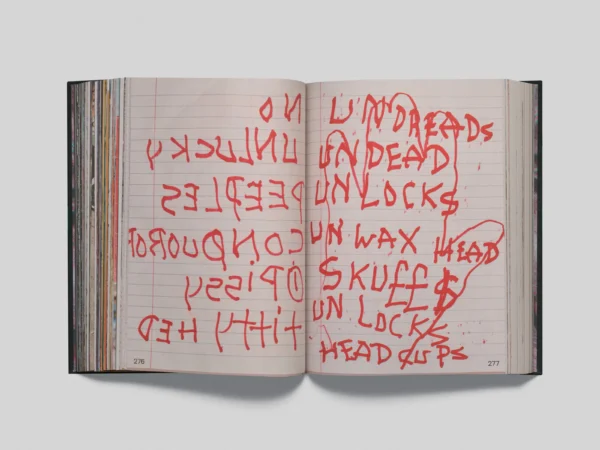 NO
UNLUCKY
PEEPLES
CONQUOROR
PISSY
TITTY HED
276
UNDREADS
UNDEAD
UNLOCK$
UN WAX HEAD
$KUFF$
UN LOCKS
HEAD CUPS
277